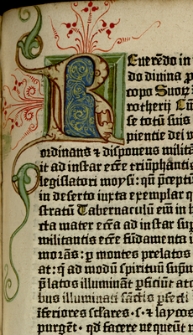 Reuerēdo in
do diuina p
copo Suoꝛ
rotherij Ca
se totū suis
pientie dei
oꝛdinans ⁊ disponens militā
it ad instar ecc̄e triūphātis
legislatori moysi: qm̄ p̄ceptū
in deserto iuxta exemplar q
stratū Tabernaculū em̄ in
rta mater ecc̄a ad instar sup
militantis ecc̄e fūdamenta i
moꝛās: p montes prelatos
at: q̄ ad modū spirituū supīo
p̄latos illuminat̄ p̄ficiūt̄ atq
bus illuminati sāctis p̄fecti
iferiores sc̄ares. s. ⁊ laycos
purgēt. qd̄ facere neqūeūt n